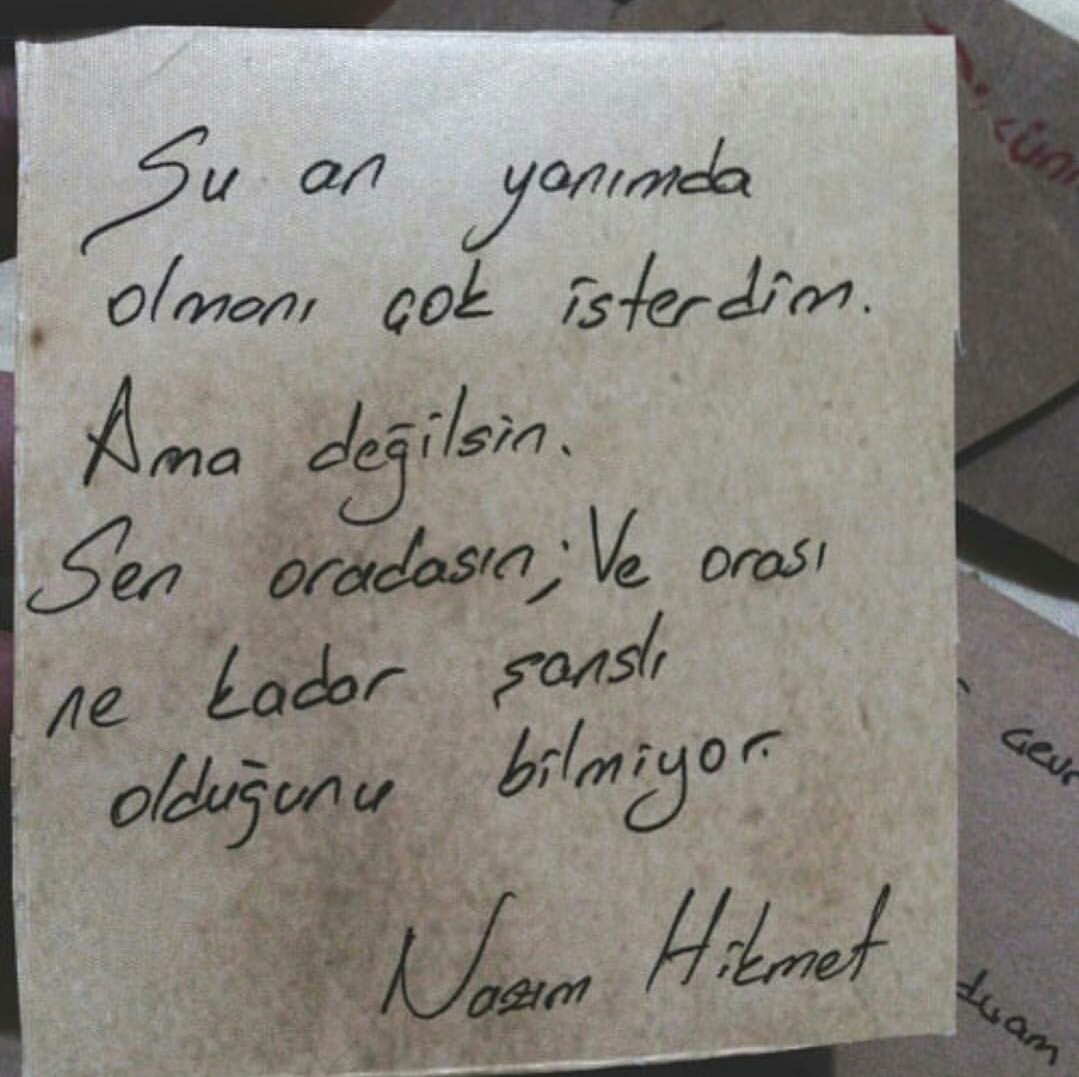 Şu an yanımda
olmanı çok isterdim.
Ama değilsin.
Sen oradasın; Ve orası
ne kadar şanslı
olduğunu bilmiyor.
Nazım Hikmet